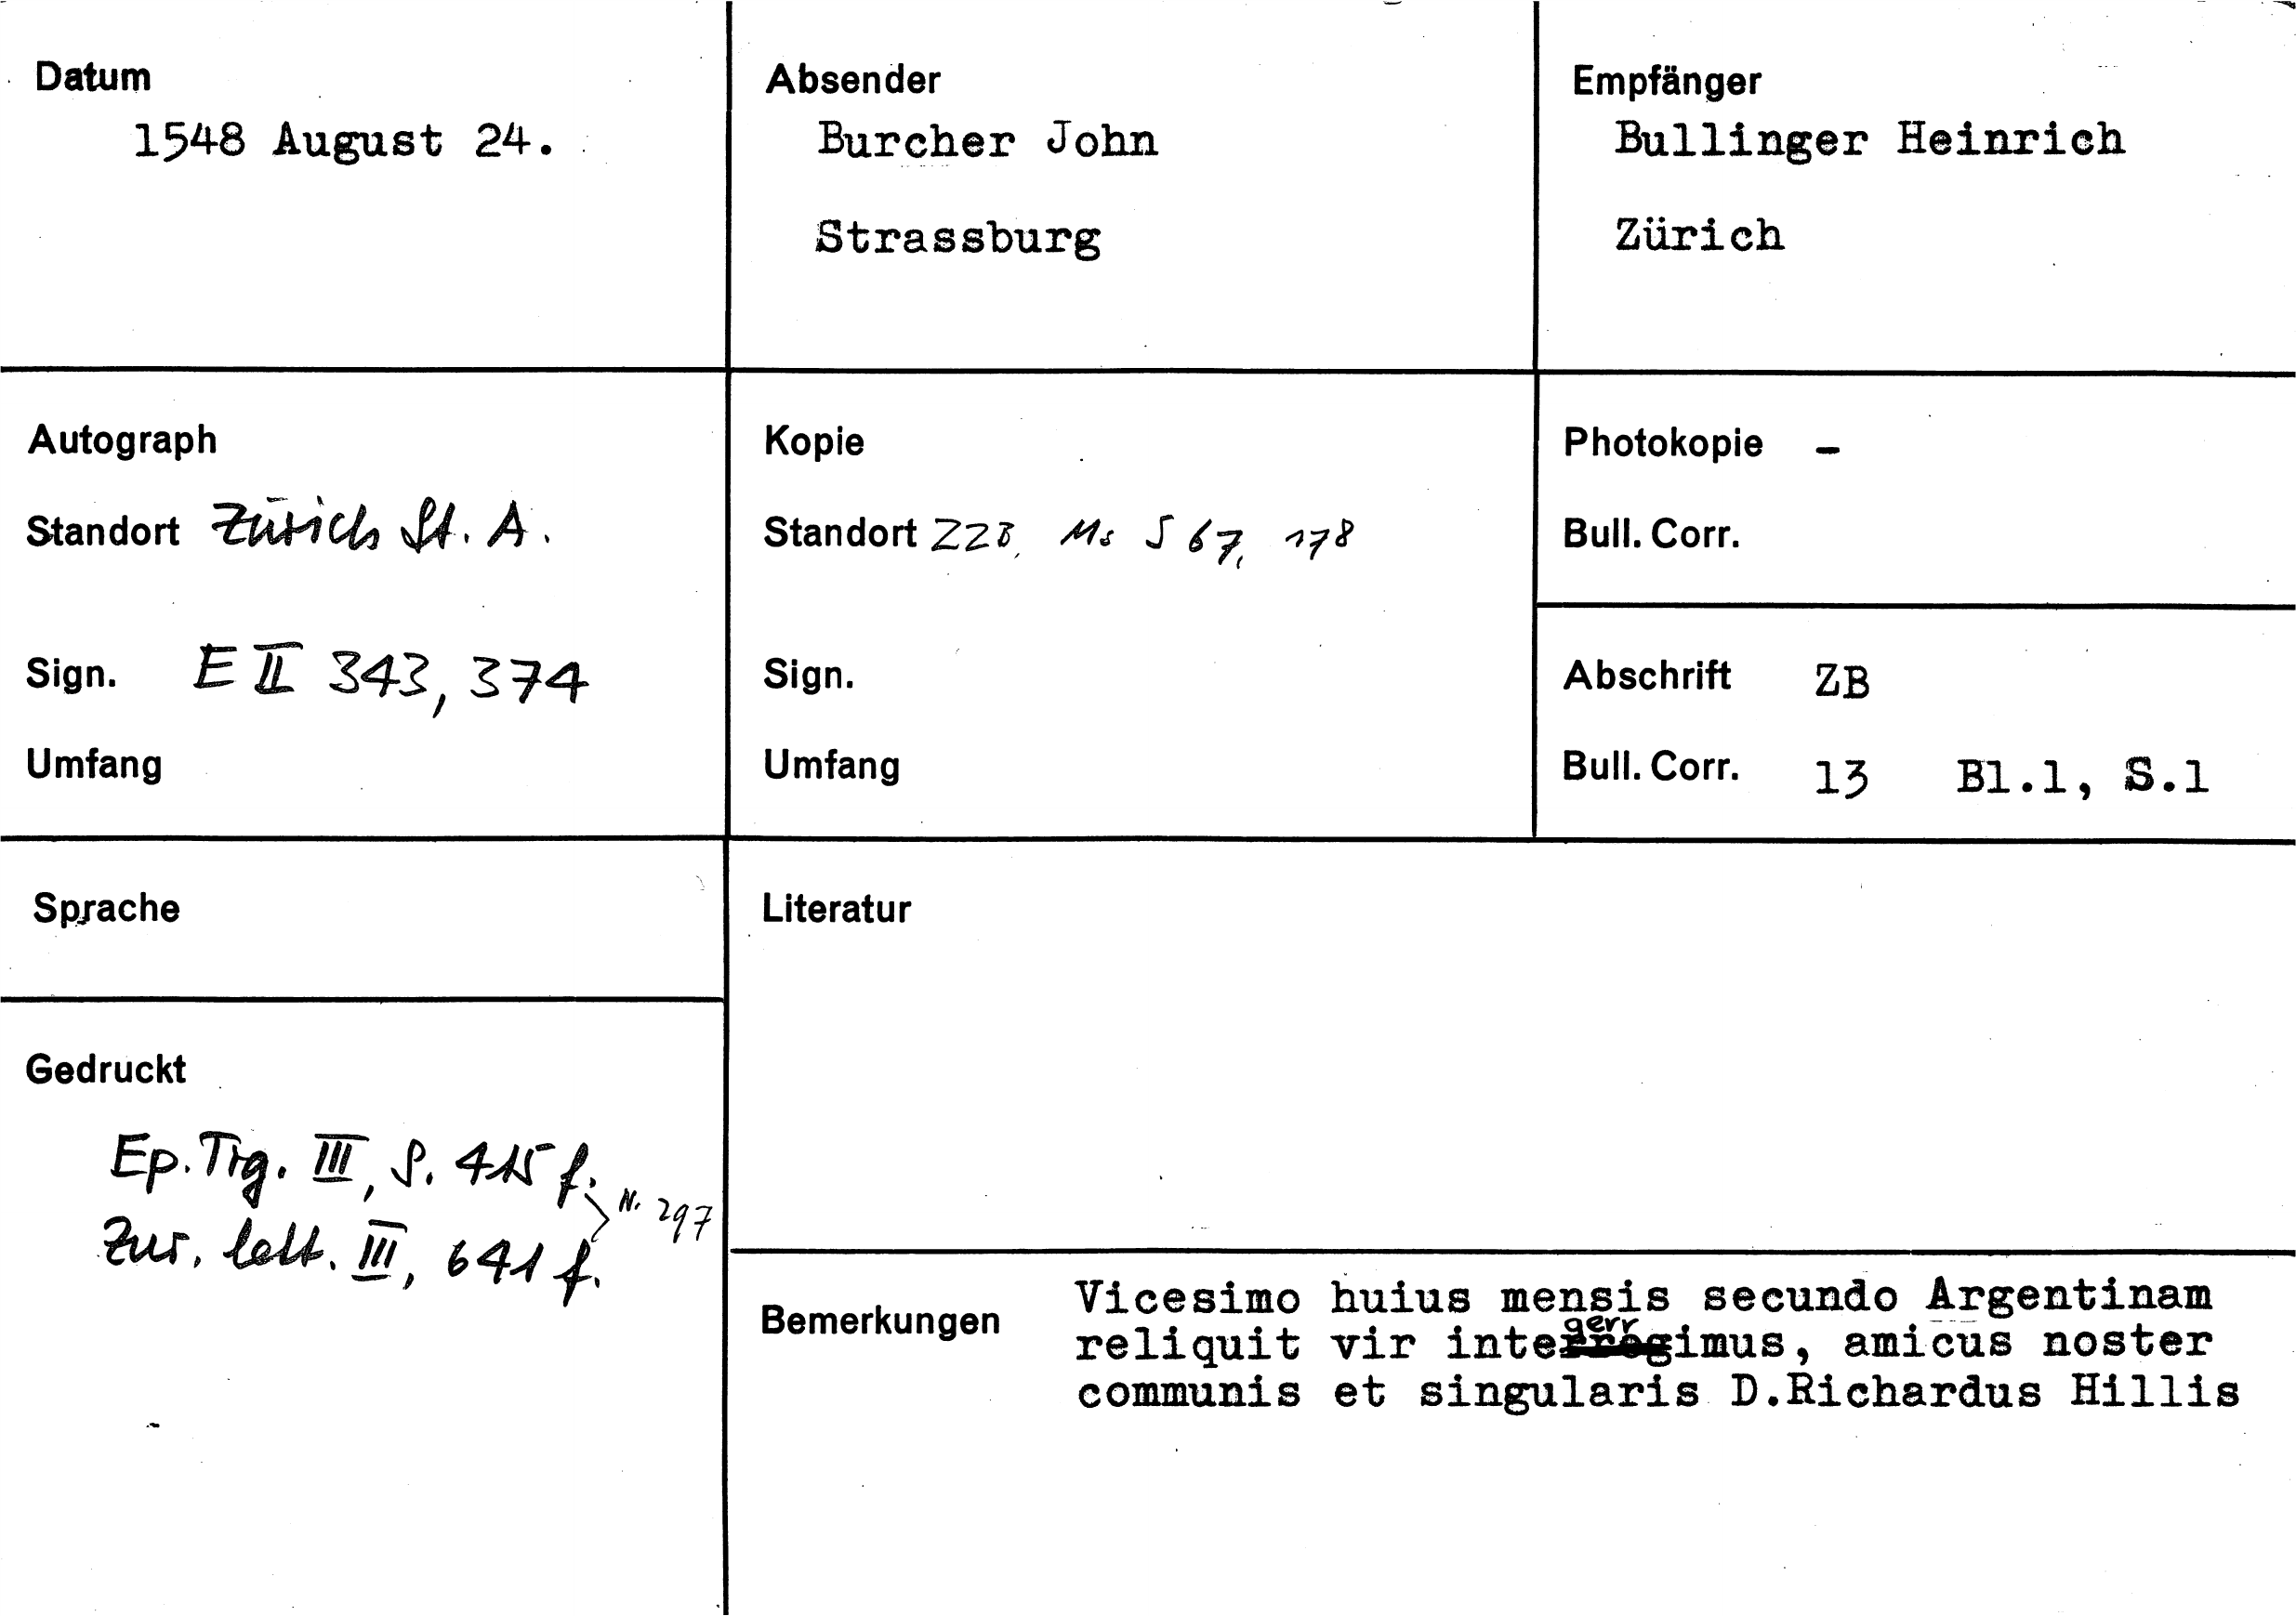 Datum
1548 August 24.
Absender
Burcher John
Strassburg
Empfänger
Bullinger Heinrich
Zürich
Autograph
Standort Zürich St. A.
Sign. E II 343, 374
Umfang
Kopie
Standort ZZB, Ms S 67, 178
Sign.
Umfang
Photokopie -
Bull. Corr.
Abschrift ZB
Bull. Corr. 13 Bl.1, S.1
Sprache
Gedruckt
Ep. Tig. III, S. 415 f.
N. 297
Zur. lett. III, 641 f.
Literatur
Bemerkungen
Vicesimo huius mensis secundo Argentinam
reliquit vir integerrimus, amicus noster
communis et singularis D.Richardus Hillis